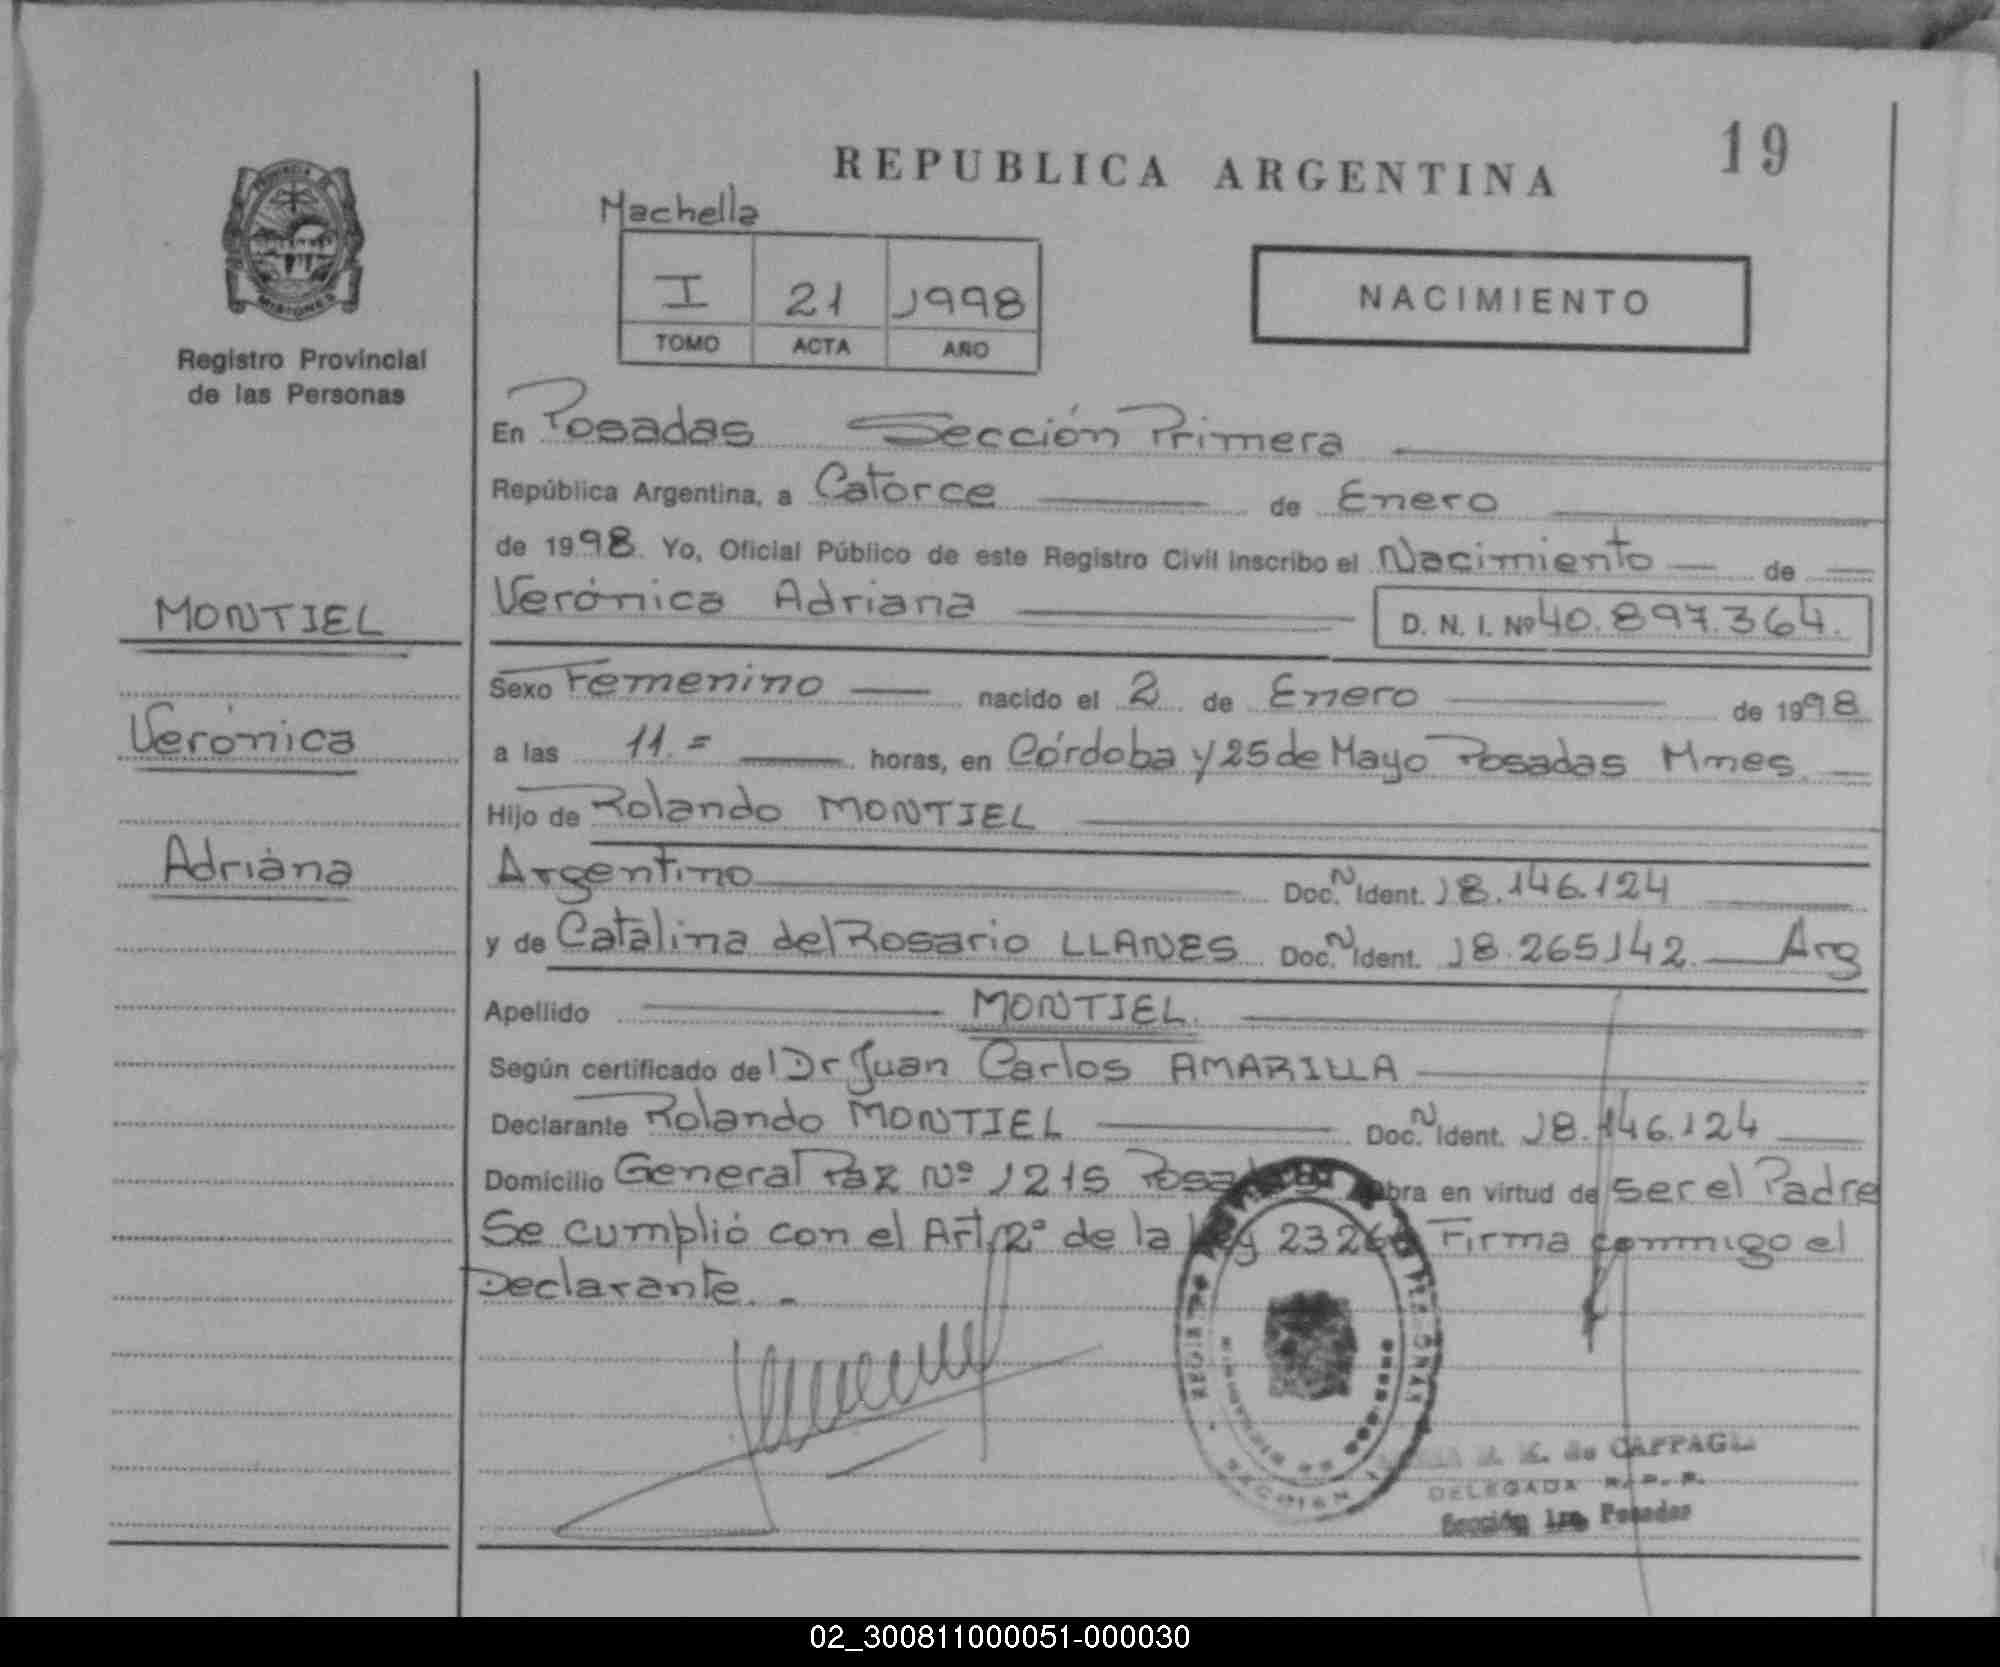 REPUBLICA ARGENTINA
19
Machella
I 21 1998
TOMO ACTA AÑO
NACIMIENTO
PROVINCIA DE
MISIONES
Registro Provincial
de las Personas
MONTIEL
Verónica
Adriana
En Posadas Sección Primera
República Argentina, a Catorce de Enero
de 1998. Yo, Oficial Público de este Registro Civil inscribo el Nacimiento de
Verónica Adriana D. N. I. Nº 40.897.364.
Sexo Femenino nacido el 2 de Enero de 1998
a las 11.= horas, en Córdoba y 25 de Mayo Posadas Mnes.
Hijo de Rolando MONTIEL
Argentino Doc. N Ident. 18.146.124
y de Catalina del Rosario LLANES Doc. N Ident. 18.265.142. Arg
Apellido MONTIEL.
Según certificado del Dr Juan Carlos AMARILLA
Declarante Rolando MONTIEL Doc. N Ident. 18.146.124
Domicilio General Paz Nº 1215 Posadas Obra en virtud de ser el Padre
Se cumplió con el Art. 2º de la Ley 23264 Firma conmigo el
Declarante. -
de CAPPAG
DELEGADA R. P. P.
Sección 1ra Posadas
02_300811000051-000030